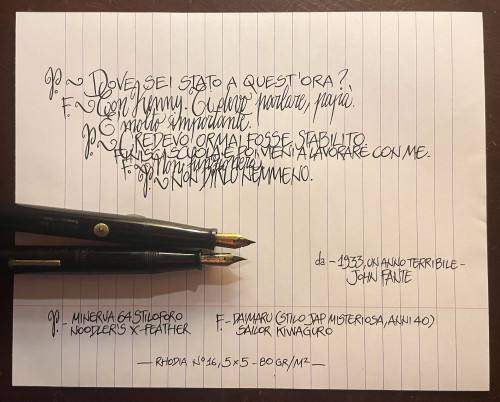 P. ~ DOVE SEI STATO A QUEST'ORA?
F. ~ Con Kenny. Ti devo parlare, papà.
È molto importante.
P. ~ CREDEVO ORMAI FOSSE STABILITO.
FINISCI SCUOLA E POI VIENI A LAVORARE CON ME.
F. ~ Non funzionerà.
P. ~ NON DIRLO NEMMENO.
da - 1933, UN ANNO TERRIBILE -
JOHN FANTE
P. - MINERVA 64, STILOFORO
NOODLER'S X-FEATHER
F. - DAIMARU (STILO JAP MISTERIOSA, ANNI 40)
SAILOR KIWAGURO
— RHODIA Nº16, 5x5 - 80 GR/M² —